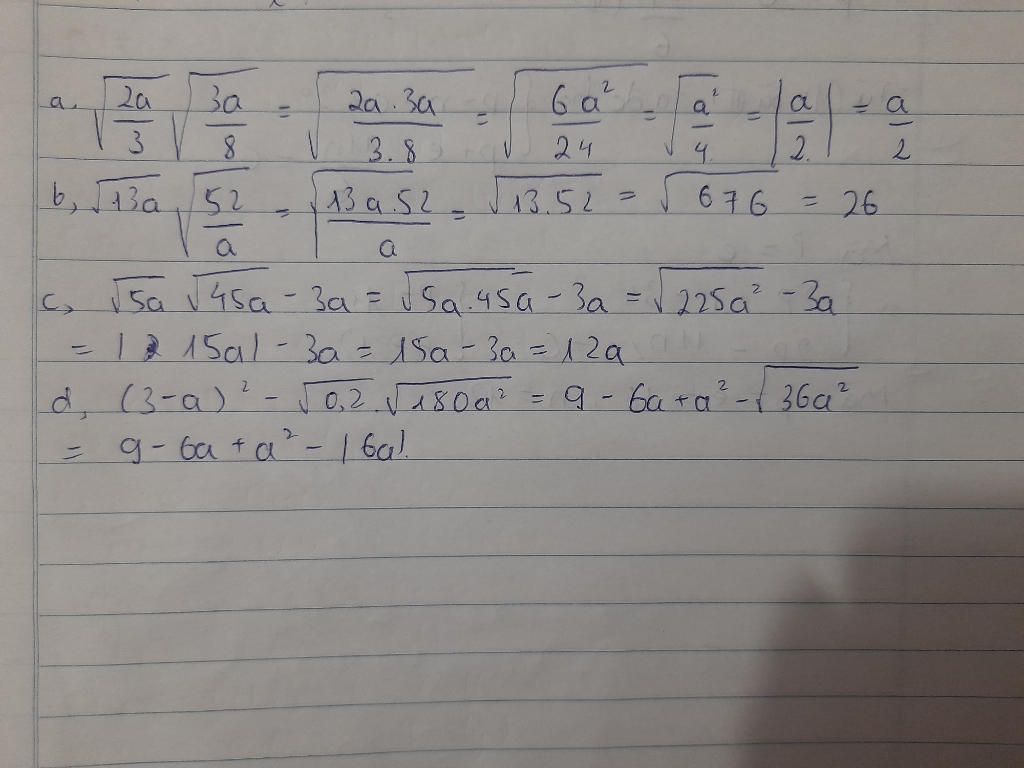 a. √(2a/3) √(3a/8) = √(2a.3a/3.8) = √(6a²/24) = √(a²/4) = |a/2| = a/2
b, √13a √(52/a) = √(13a.52/a) = √13.52 = √676 = 26
c, √5a √45a - 3a = √5a.45a - 3a = √225a² - 3a
= |15a| - 3a = 15a - 3a = 12a
d, (3-a)² - √0,2.√180a² = 9 - 6a + a² - √36a²
= 9 - 6a + a² - |6a|.